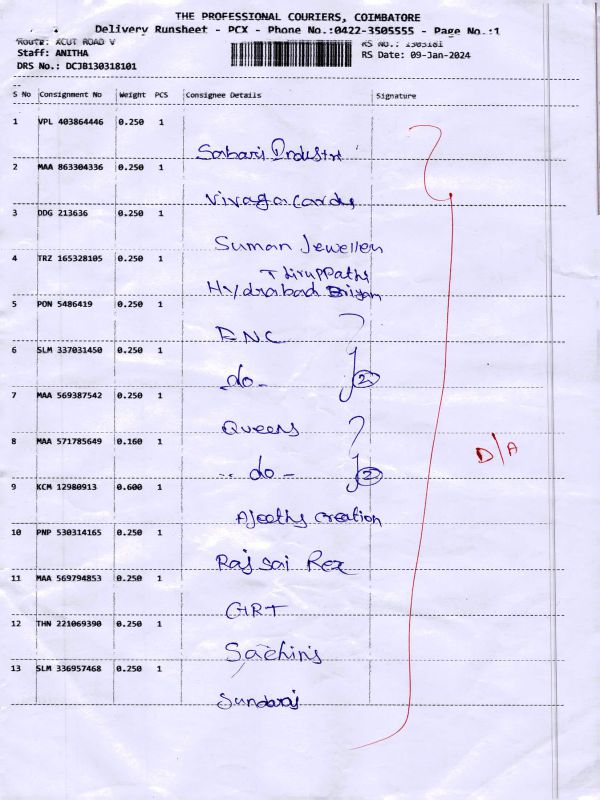 THE PROFESSIONAL COURIERS, COIMBATORE
Delivery Runsheet - PCX - Phone No.:0422-3505555 - Page No.:1
Route: XCUT ROAD V RS No.: 1303181
Staff: ANITHA RS Date: 09-Jan-2024
DRS No.: DCJB130318101
S No Consignment No Weight PCS Consignee Details Signature
1 VPL 403864446 0.250 1
Sabari Industri
2 MAA 863304336 0.250 1
Vivaga cards
3 DDG 213636 0.250 1
Suman Jewellery
4 TRZ 165328105 0.250 1
Thiruppathi
Hydrabad Briyani
5 PON 5486419 0.250 1
ENC
6 SLM 337031450 0.250 1
-do- 2
7 MAA 569387542 0.250 1
Queens
8 MAA 571785649 0.160 1
-- do - 2
D/A
9 KCM 12980913 0.600 1
Ajeeths creation
10 PNP 530314165 0.250 1
Raj sai Rex
11 MAA 569794853 0.250 1
GRT
12 THN 221069390 0.250 1
Sachins
13 SLM 336957468 0.250 1
Sundaraj